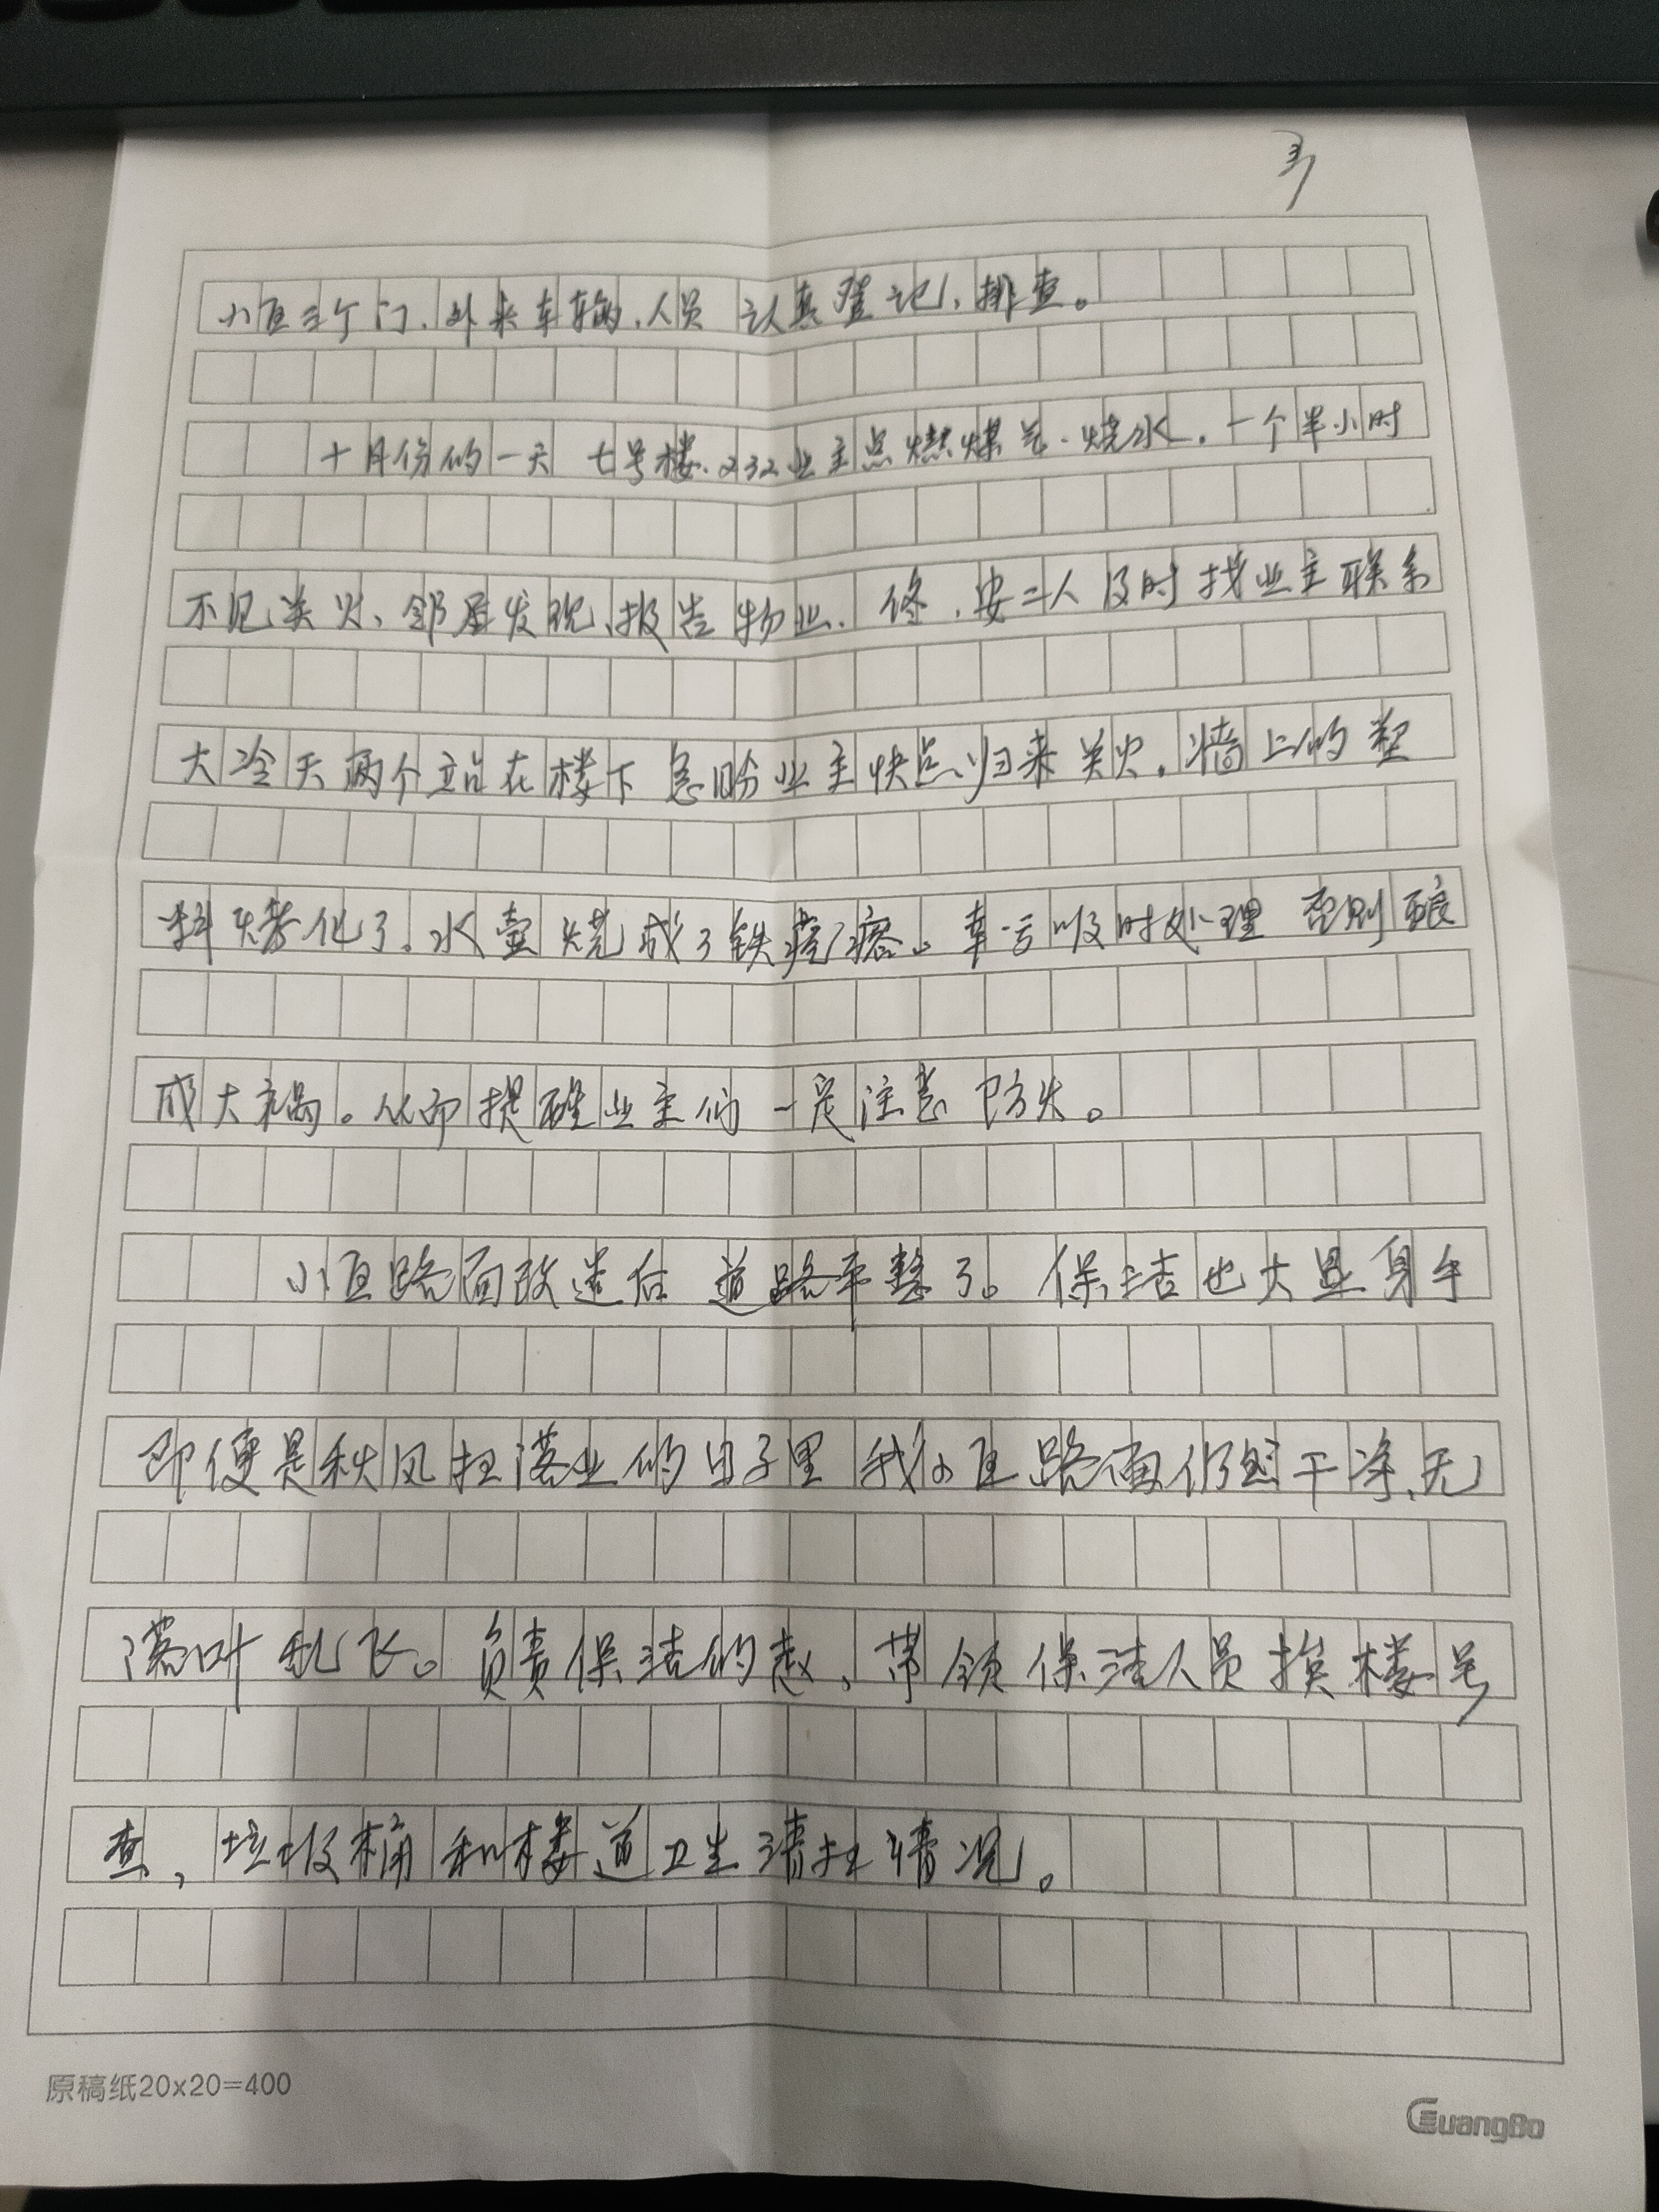 3
小区三个门、外来车辆、人员 认真登记、排查。
十月份的一天 七号楼、232业主点燃煤气、烧水，一个半小时
不见关火、邻居发现、报告物业、佟、安二人及时找业主联系
大冷天两个站在楼下 急盼业主快点归来关火，墙上的塑
料烤化了。水壶烧成了铁疙瘩。幸亏及时处理 否则酿
成大祸。从而提醒业主们一定注意防火。
小区路面改造后 道路平整了。保洁也大显身手
即便是秋风扫落业的日子里 我小区路面仍然干净、无
落叶乱飞。负责保洁的赵、带领保洁人员挨楼号
查，垃圾桶和楼道卫生清扫情况。
原稿纸20x20=400
GuangBo